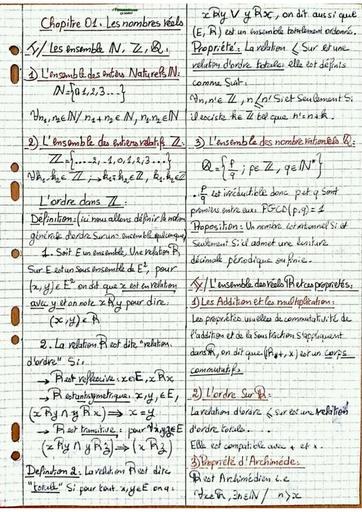 Chapitre 01: Les nombres réels
I/ Les ensemble ℕ, ℤ, ℚ:
1) L'ensemble des entiers Naturels ℕ:
ℕ={0,1,2,3...}
∀n₁,n₂∈ℕ/ n₁+n₂∈ℕ, n₁.n₂∈ℕ
2) L'ensemble des entiers relatifs ℤ:
ℤ={....-2,-1,0,1,2,3...}
∀k₁,k₂∈ℤ
L'ordre dans ℤ:
Définition: (ici nous allons définir la notion
générale d'ordre sur un ensemble quelconque)
1. Soit E un ensemble. Une relation R
Sur E est un sous ensemble de E², pour
(x,y)∈E² on dit que x est en relation
avec y et on note xRy pour dire:
(x,y)∈R
2. La relation R est dite "relation
d'ordre" Si:
→ R est reflexive: x∈E, xRx
→ R est antisymétrique: x,y∈E,
(xRy ∩ yRx) ⟹ x=y
→ R est transitive: pour
(xRy ∩ yRz) ⟹ (xRz)
Définition 2: La relation R est dite
"totale" Si pour tout x,y∈E on a:
xRy ∨ yRx, on dit aussi que
(E,R) est un ensemble totalement ordonné.
Propriété: La relation ≤ Sur ℤ est une
relation d'ordre totale: elle est définis
comme Suit:
∀n,n'∈ℤ, n≤n' Si et Seulement Si
il existe k∈ℤ tel que n'=n+k.
3) L'ensemble des nombre rationnels ℚ:
ℚ={p/q ; p∈ℤ, q∈ℕ*}
p/q est irréductible donc p et q Sont
premiers entre eux PGCD(p,q)=1
Proposition: Un nombre est rationnel Si et
Seulement Si il admet une écriture
décimale périodique ou finie.
II/ L'ensemble des réels ℝ et ces propriétés:
1) Les Addition et les multiplication:
Les propriétés usuelles de commutativité de
l'addition et de la Soustraction S'appliquent
dans ℝ, on dit que (ℝ,+,x) est un corps
commutatif.
2) L'ordre Sur ℝ:
La relation d'ordre ≤ Sur est une relation
d'ordre totale...
Elle est compatible avec + et x.
3) Propriété d'Archimède:
ℝ est Archimédien i.e
∀x∈ℝ, ∃n∈ℕ / n>x